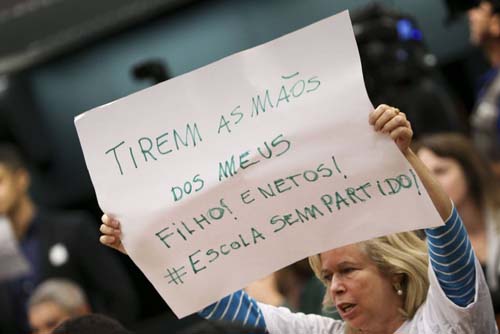 TIREM AS MÃOS
DOS MEUS
FILHOS! E NETOS!
#ESCOLA SEMPARTIDO!